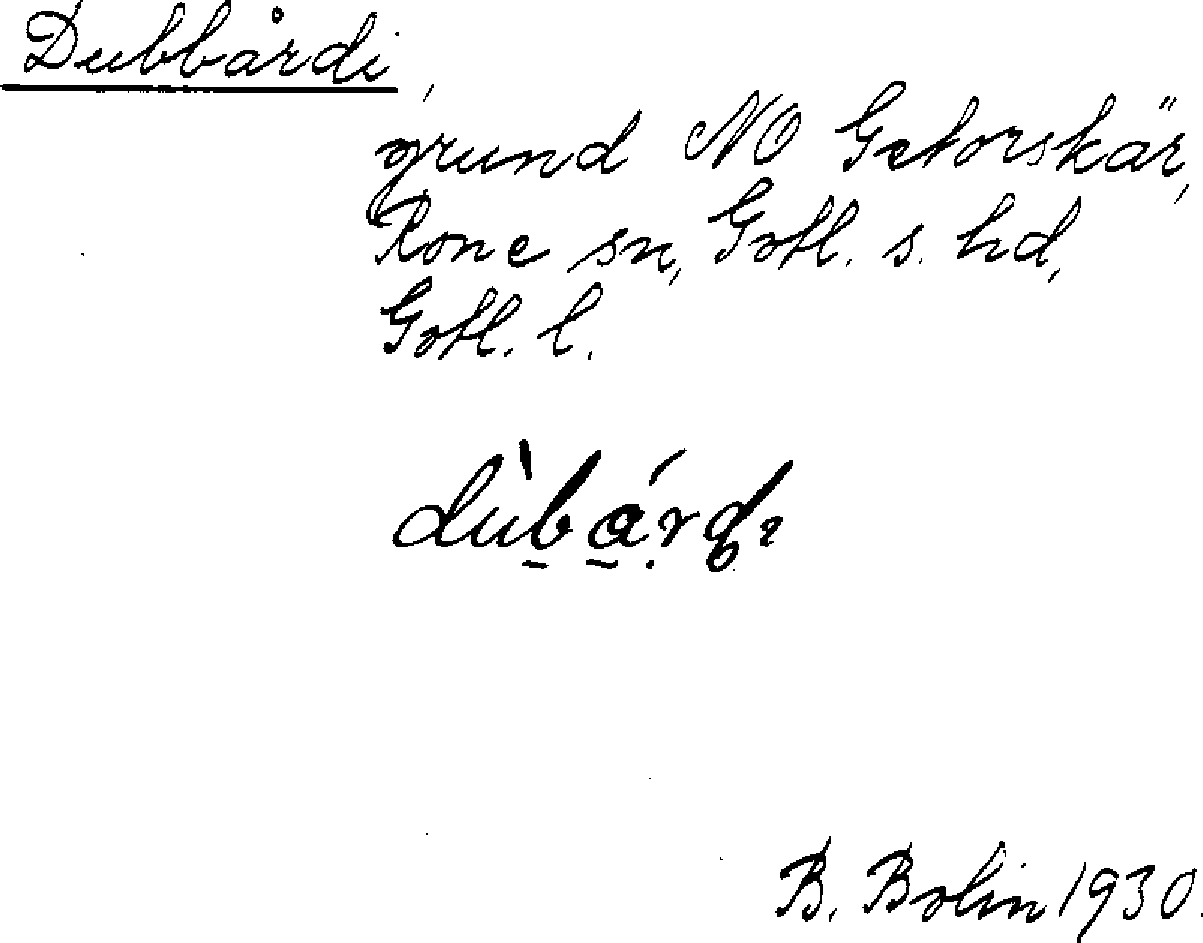 Dubbårdi,
grund NO Getorskär,
Rone sn, Gotl. s. hd,
Gotl. l.
B. Bolin 1930.